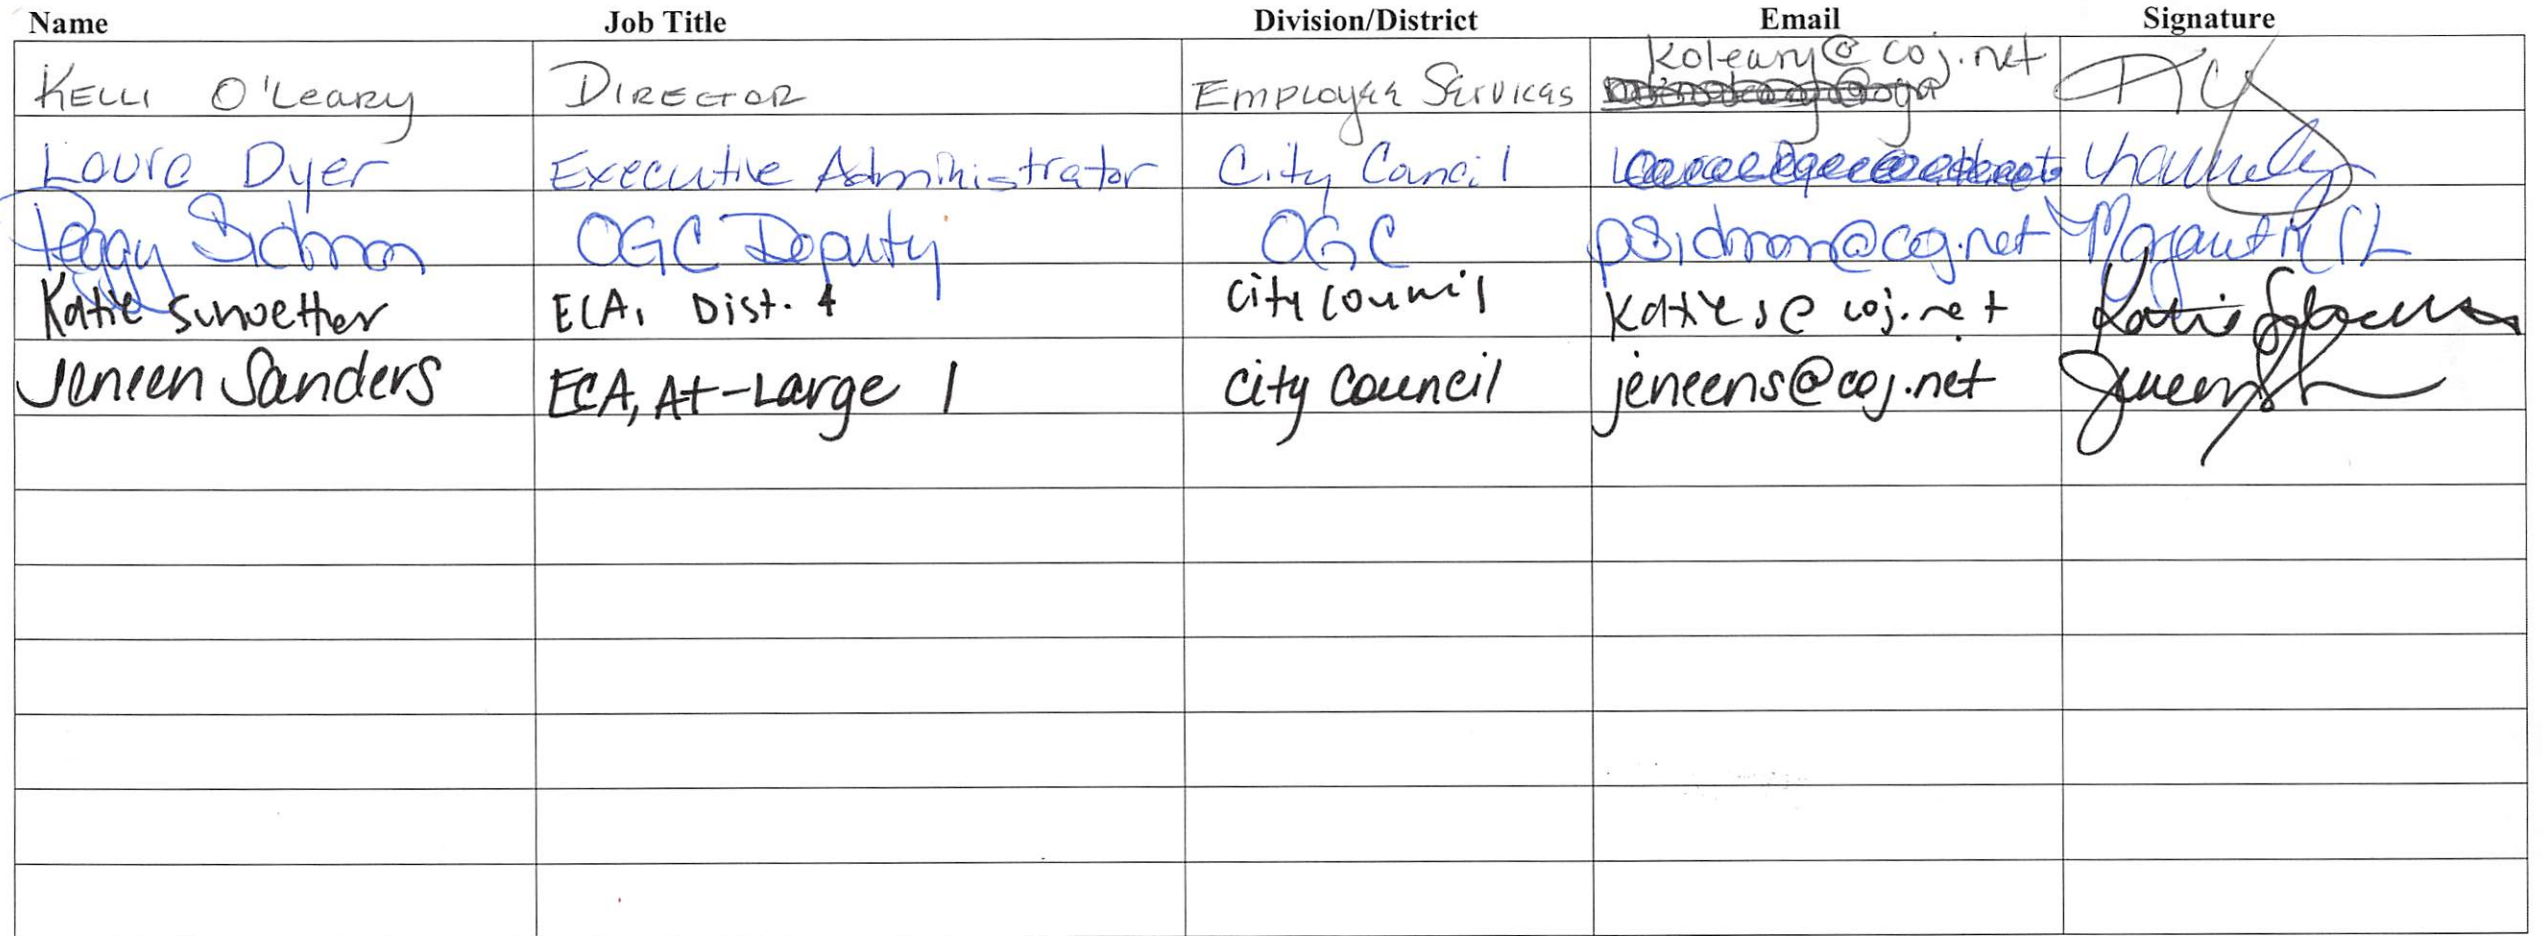 Name Job Title Division/District Email Signature
KELLI O'Leary DIRECTOR Employee Services koleary@coj.net
Laura Dyer Executive Administrator City Concil
Peggy Sidman OGC Deputy OGC psidman@coj.net
Katie ECA, Dist. 4 City Council katies@coj.net
Jeneen Sanders ECA, At-Large 1 City Council jeneens@coj.net